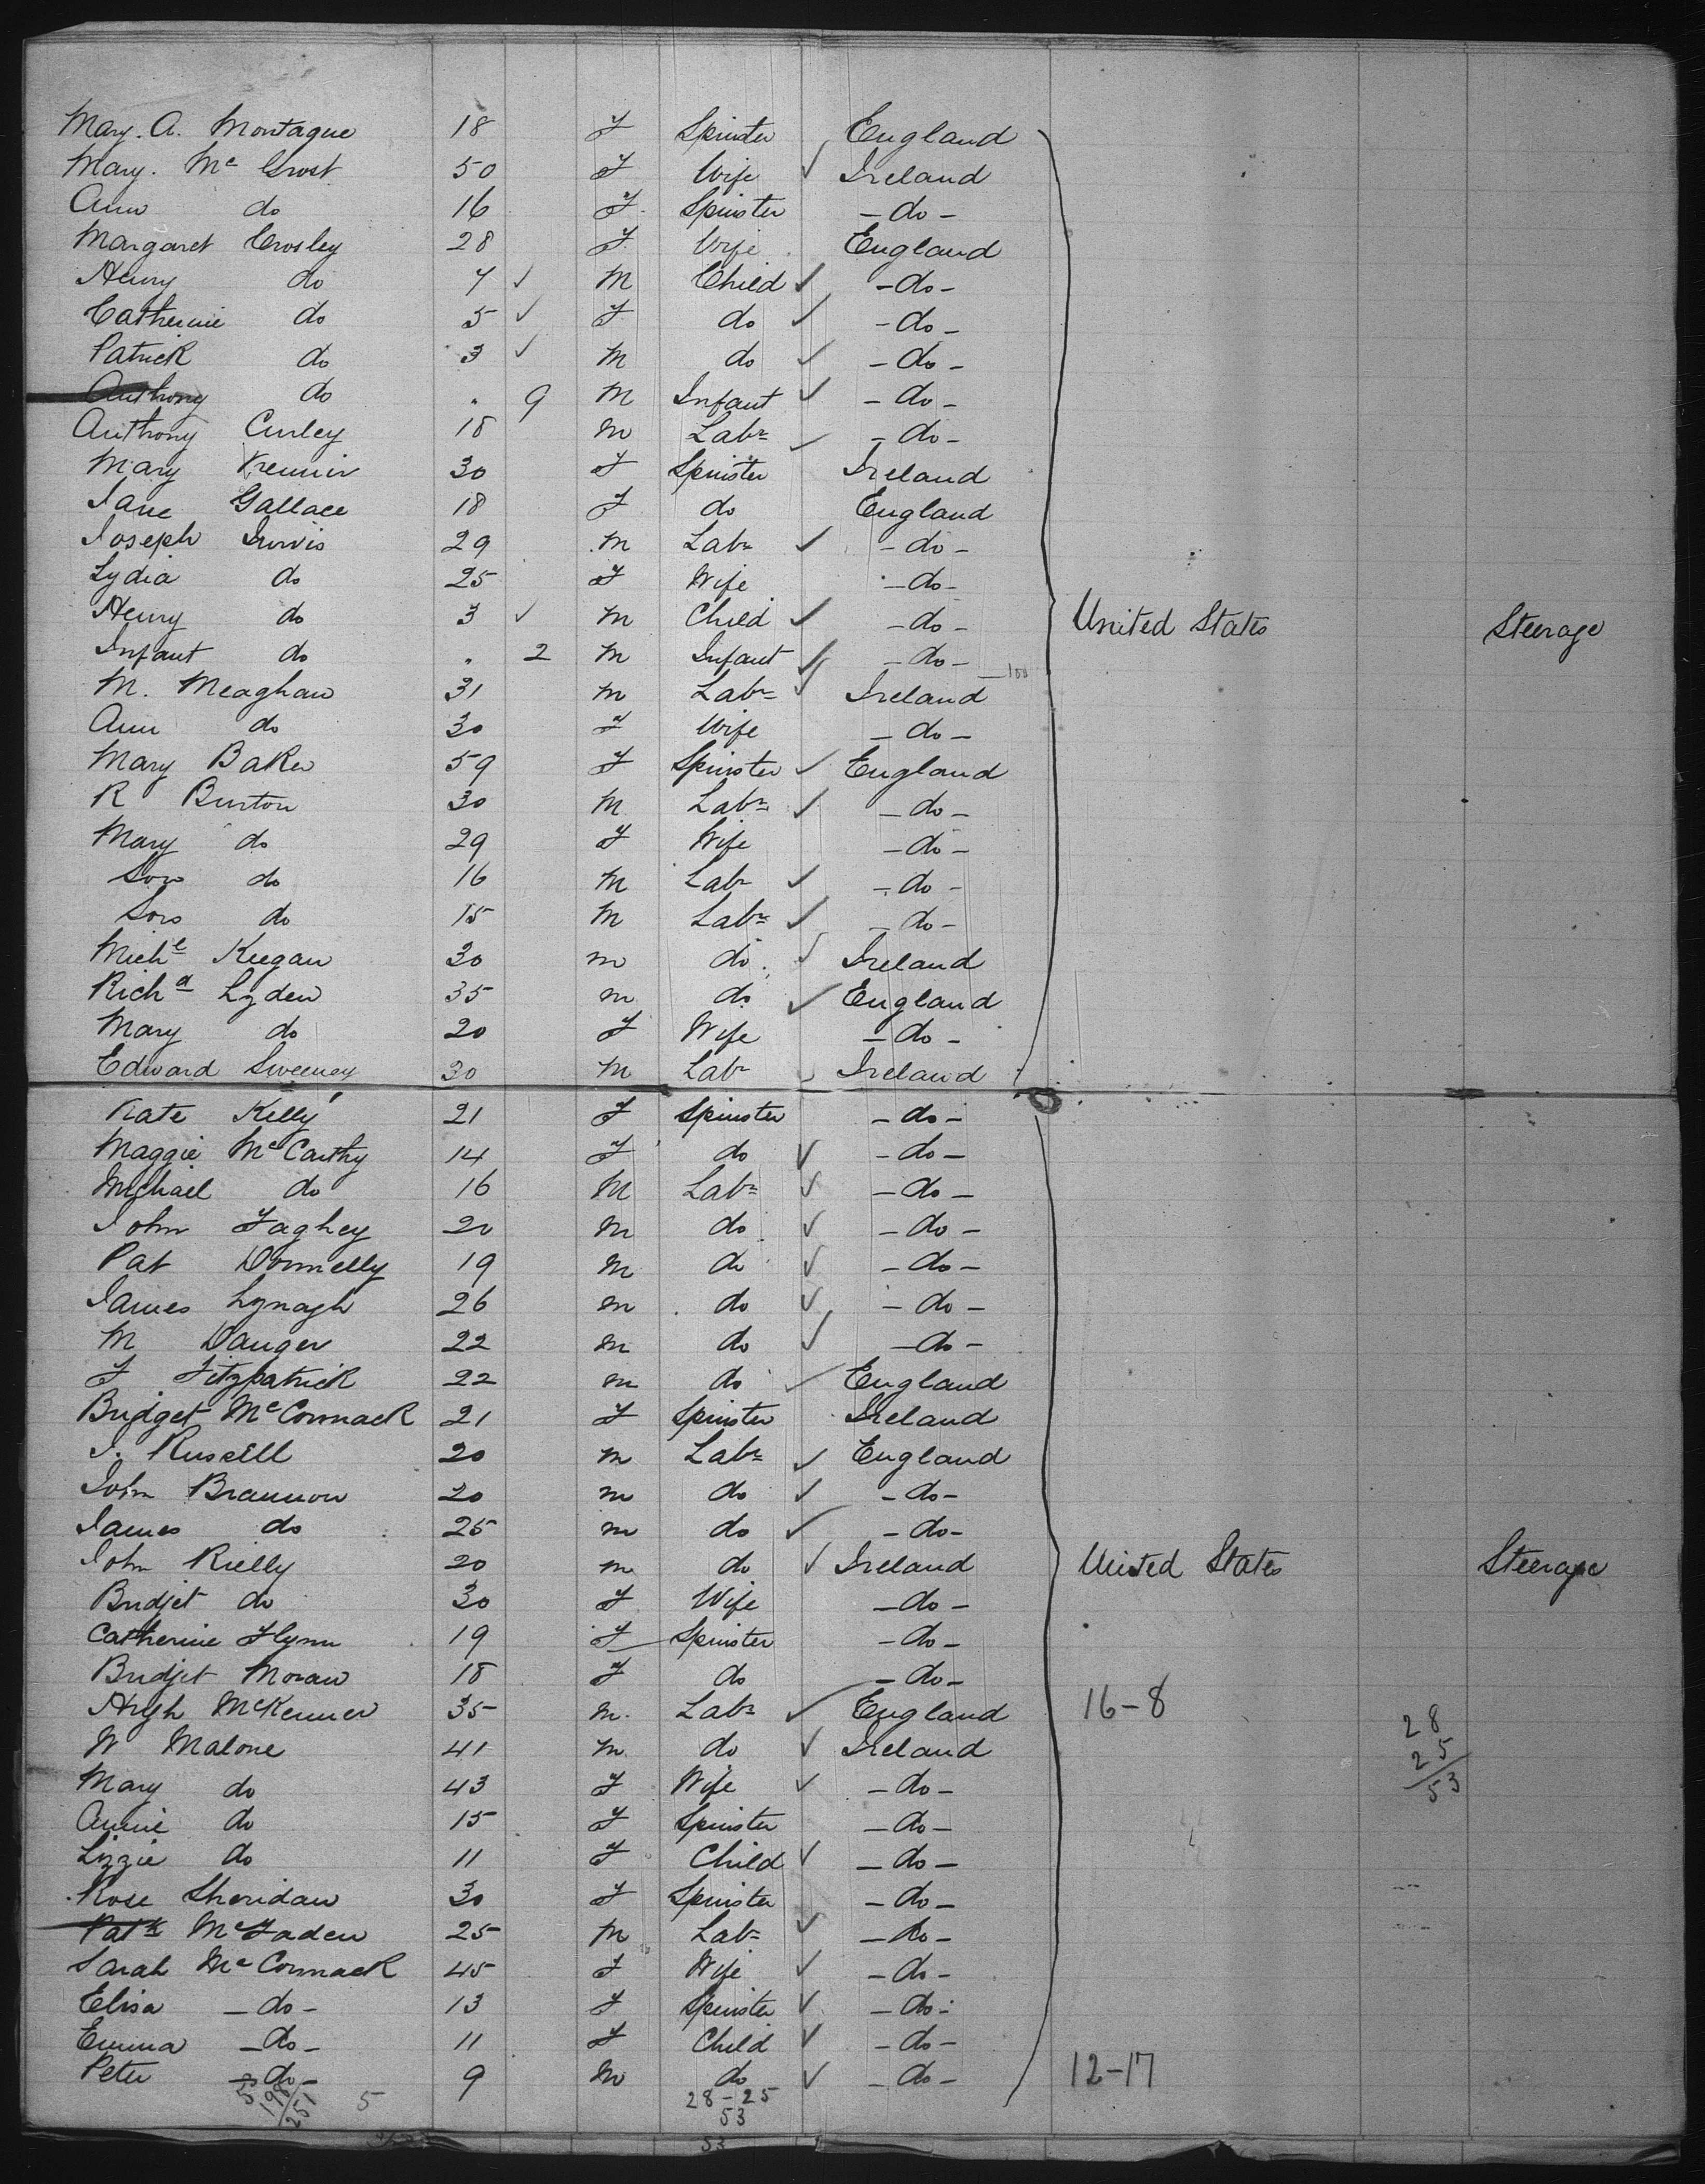 Mary. A. Montague 18 F Spinster England
Mary. Mc Grost 50 F Wife ✓ Ireland
Ann do 16 F Spinster - do -
Margaret Crosley 28 F Wife England
Henry do 7 ✓ M Child ✓ - do -
Catherine do 5 ✓ F do ✓ - do -
Patrick do 3 ✓ M do ✓ - do -
Anthony do . 9 M Infant ✓ - do -
Anthony Curley 18 m Labr ✓ - do -
Mary 30 F Spinster Ireland
Jane Gallace 18 F do England
Joseph 29 M Labr ✓ - do -
Lydia do 25 F Wife - do -
Henry do 3 ✓ M Child ✓ - do - United States Steerage
Infant do . 2 M Infant ✓ - do - 100
M. Meaghan 31 m Labr ✓ Ireland
Ann do 30 F Wife - do -
Mary Baker 59 F Spinster ✓ England
R Burton 30 M Labr ✓ - do -
Mary do 29 F Wife - do -
Son do 16 M Labr ✓ - do -
Son do 15 M Labr ✓ - do -
Michl Keegan 30 m do ✓ Ireland
Richd Lyden 35 m do ✓ England
Mary do 20 F Wife - do -
Edward Sweeney 30 M Labr ✓ Ireland
Kate Kelly 21 F Spinster - do -
Maggie McCarthy 14 F do ✓ - do -
Michael do 16 M Labr ✓ - do -
John Faghey 20 m do ✓ - do -
Pat Donnelly 19 m do ✓ - do -
James Lynagh 26 m do ✓ - do -
M Danger 22 m do ✓ - do -
F Fitzpatrick 22 m do ✓ England
Bridget McCormack 21 F Spinster Ireland
J. Russell 20 m Labr ✓ England
John Brannon 20 m do ✓ - do -
James do 25 m do ✓ - do -
John Rielly 20 m do ✓ Ireland United States Steerage
Bridjet do 30 F Wife - do -
Catherine Flynn 19 F Spinster - do -
Bridjet Moran 18 F do - do -
Hugh McKenner 35 m. Labr ✓ England 16-8
W Malone 41 m. do ✓ Ireland 28
25
Mary do 43 F Wife ✓ - do - 53
Annie do 15 F Spinster - do -
Lizzie do 11 F Child ✓ - do -
Rose Sheridan 30 F Spinster - do -
Patk McFaden 25 M Labr ✓ - do -
Sarah McCormack 45 F Wife ✓ - do -
Elisa - do - 13 F Spinster ✓ - do -
Emma - do - 11 F Child ✓ - do -
Peter - do - 9 M do ✓ - do - 12-17
53 198 251 5 28-25
53
53